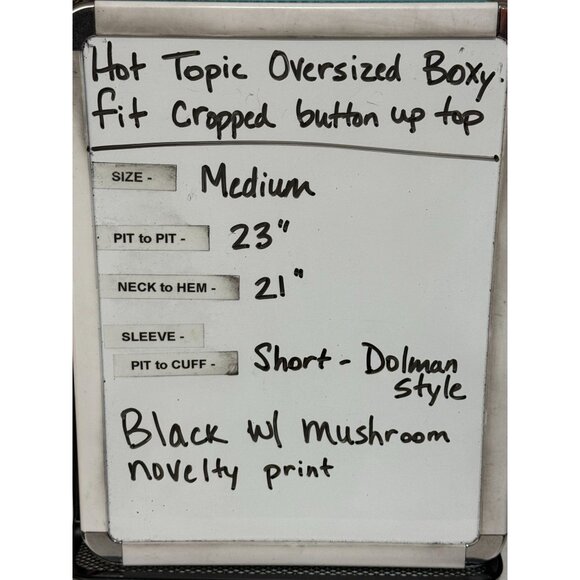 Hot Topic Oversized Boxy
fit Cropped button up top
SIZE - Medium
PIT to PIT - 23"
NECK to HEM - 21"
SLEEVE -
PIT to CUFF - Short - Dolman
style
Black w/ mushroom
novelty print